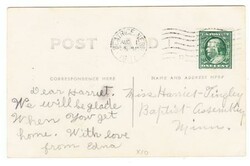 POST
CORRESPONDENCE HERE
NAME AND ADDRESS HERE
Dear Harriet.
We will be glade
When you get
home. With love
from Edna
Miss Harriet
Baptist Assembly
Minn.